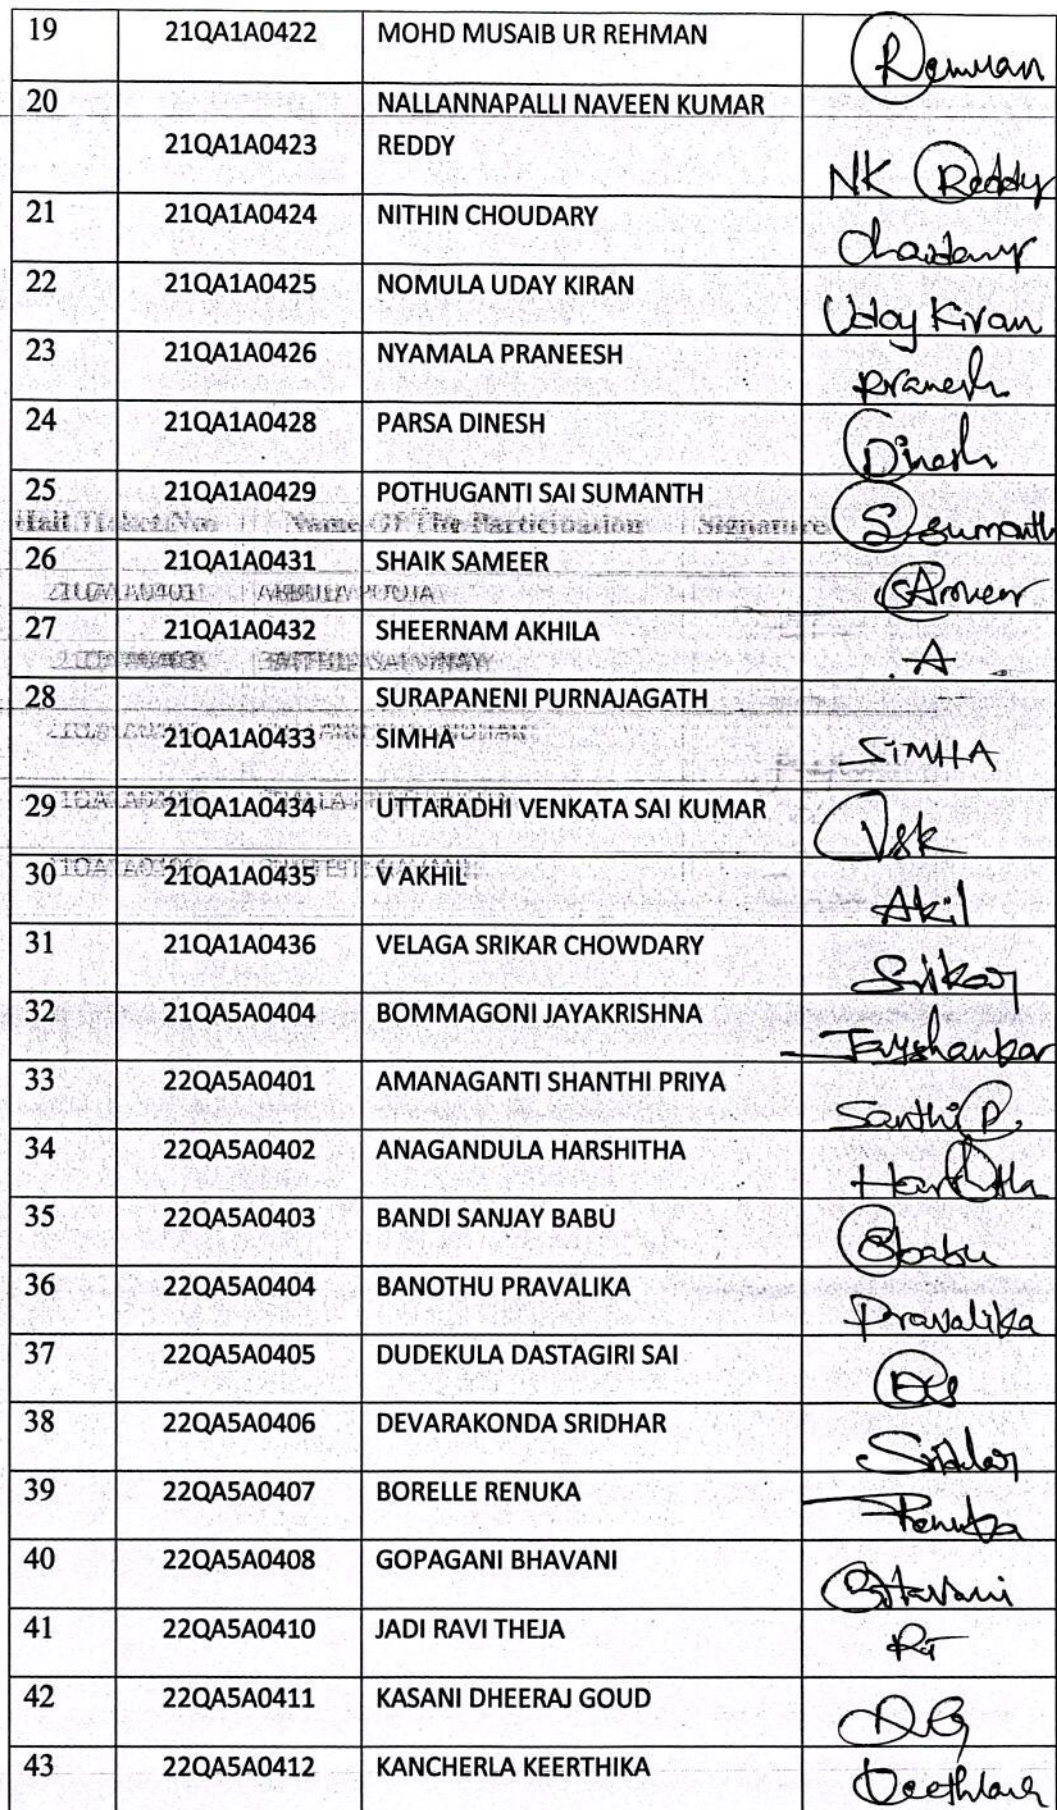 19 21QA1A0422 MOHD MUSAIB UR REHMAN Rehman
20 NALLANNAPALLI NAVEEN KUMAR
21QA1A0423 REDDY NK Reddy
21 21QA1A0424 NITHIN CHOUDARY
22 21QA1A0425 NOMULA UDAY KIRAN Uday Kiran
23 21QA1A0426 NYAMALA PRANEESH Pranesh
24 21QA1A0428 PARSA DINESH Dinesh
25 21QA1A0429 POTHUGANTI SAI SUMANTH S.Sumanth
Hall Ticket No Name Of The Participation Signature
26 21QA1A0431 SHAIK SAMEER
27 21QA1A0432 SHEERNAM AKHILA A
28 SURAPANENI PURNAJAGATH
21QA1A0433 SIMHA SIMHA
29 21QA1A0434 UTTARADHI VENKATA SAI KUMAR Vsk
30 21QA1A0435 V AKHIL Akil
31 21QA1A0436 VELAGA SRIKAR CHOWDARY Srikar
32 21QA5A0404 BOMMAGONI JAYAKRISHNA Jayshankar
33 22QA5A0401 AMANAGANTI SHANTHI PRIYA Santhi P.
34 22QA5A0402 ANAGANDULA HARSHITHA
35 22QA5A0403 BANDI SANJAY BABU Sbabu
36 22QA5A0404 BANOTHU PRAVALIKA Pravalika
37 22QA5A0405 DUDEKULA DASTAGIRI SAI
38 22QA5A0406 DEVARAKONDA SRIDHAR Sridhar
39 22QA5A0407 BORELLE RENUKA Renuka
40 22QA5A0408 GOPAGANI BHAVANI Bhavani
41 22QA5A0410 JADI RAVI THEJA RT
42 22QA5A0411 KASANI DHEERAJ GOUD DG
43 22QA5A0412 KANCHERLA KEERTHIKA